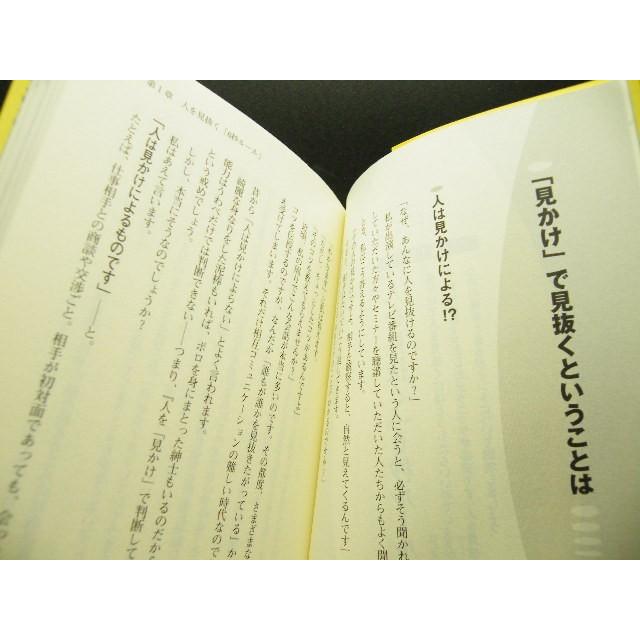 「見かけ」で見抜くということは
人は見かけによる!?
「なぜ、あんなに人を見抜けるのですか?」
私が出演しているテレビ番組を見たという人に会うと、必ずそう聞かれ
していただいた方やセミナーを聴講していただいた人たちからもよく聞
自然と見えてくるんです」
最近、私の周りでこんな会話が本当に多いのです。その都度、さまざまな
コツを伝授するのですが、なんだか「誰もが誰かを見抜きたがっている」か
を受けてしまいます。それだけ相互コミュニケーションの難しい時代なので
昔から「人は見かけによらない」とよく言われます。
綺麗な身なりをした泥棒もいれば、ボロを身にまとった紳士もいるのだから
能力はうわべだけでは判断できない――つまり、『人を「見かけ」で判断して
という戒めでしょう。
しかし、本当にそうなのでしょうか?
私はあえて言います。
「人は見かけによるものです」――と。
たとえば、仕事相手との商談や交渉ごと。相手が初対面であっても、会っ
第1章 人を見抜く「6秒ルール」